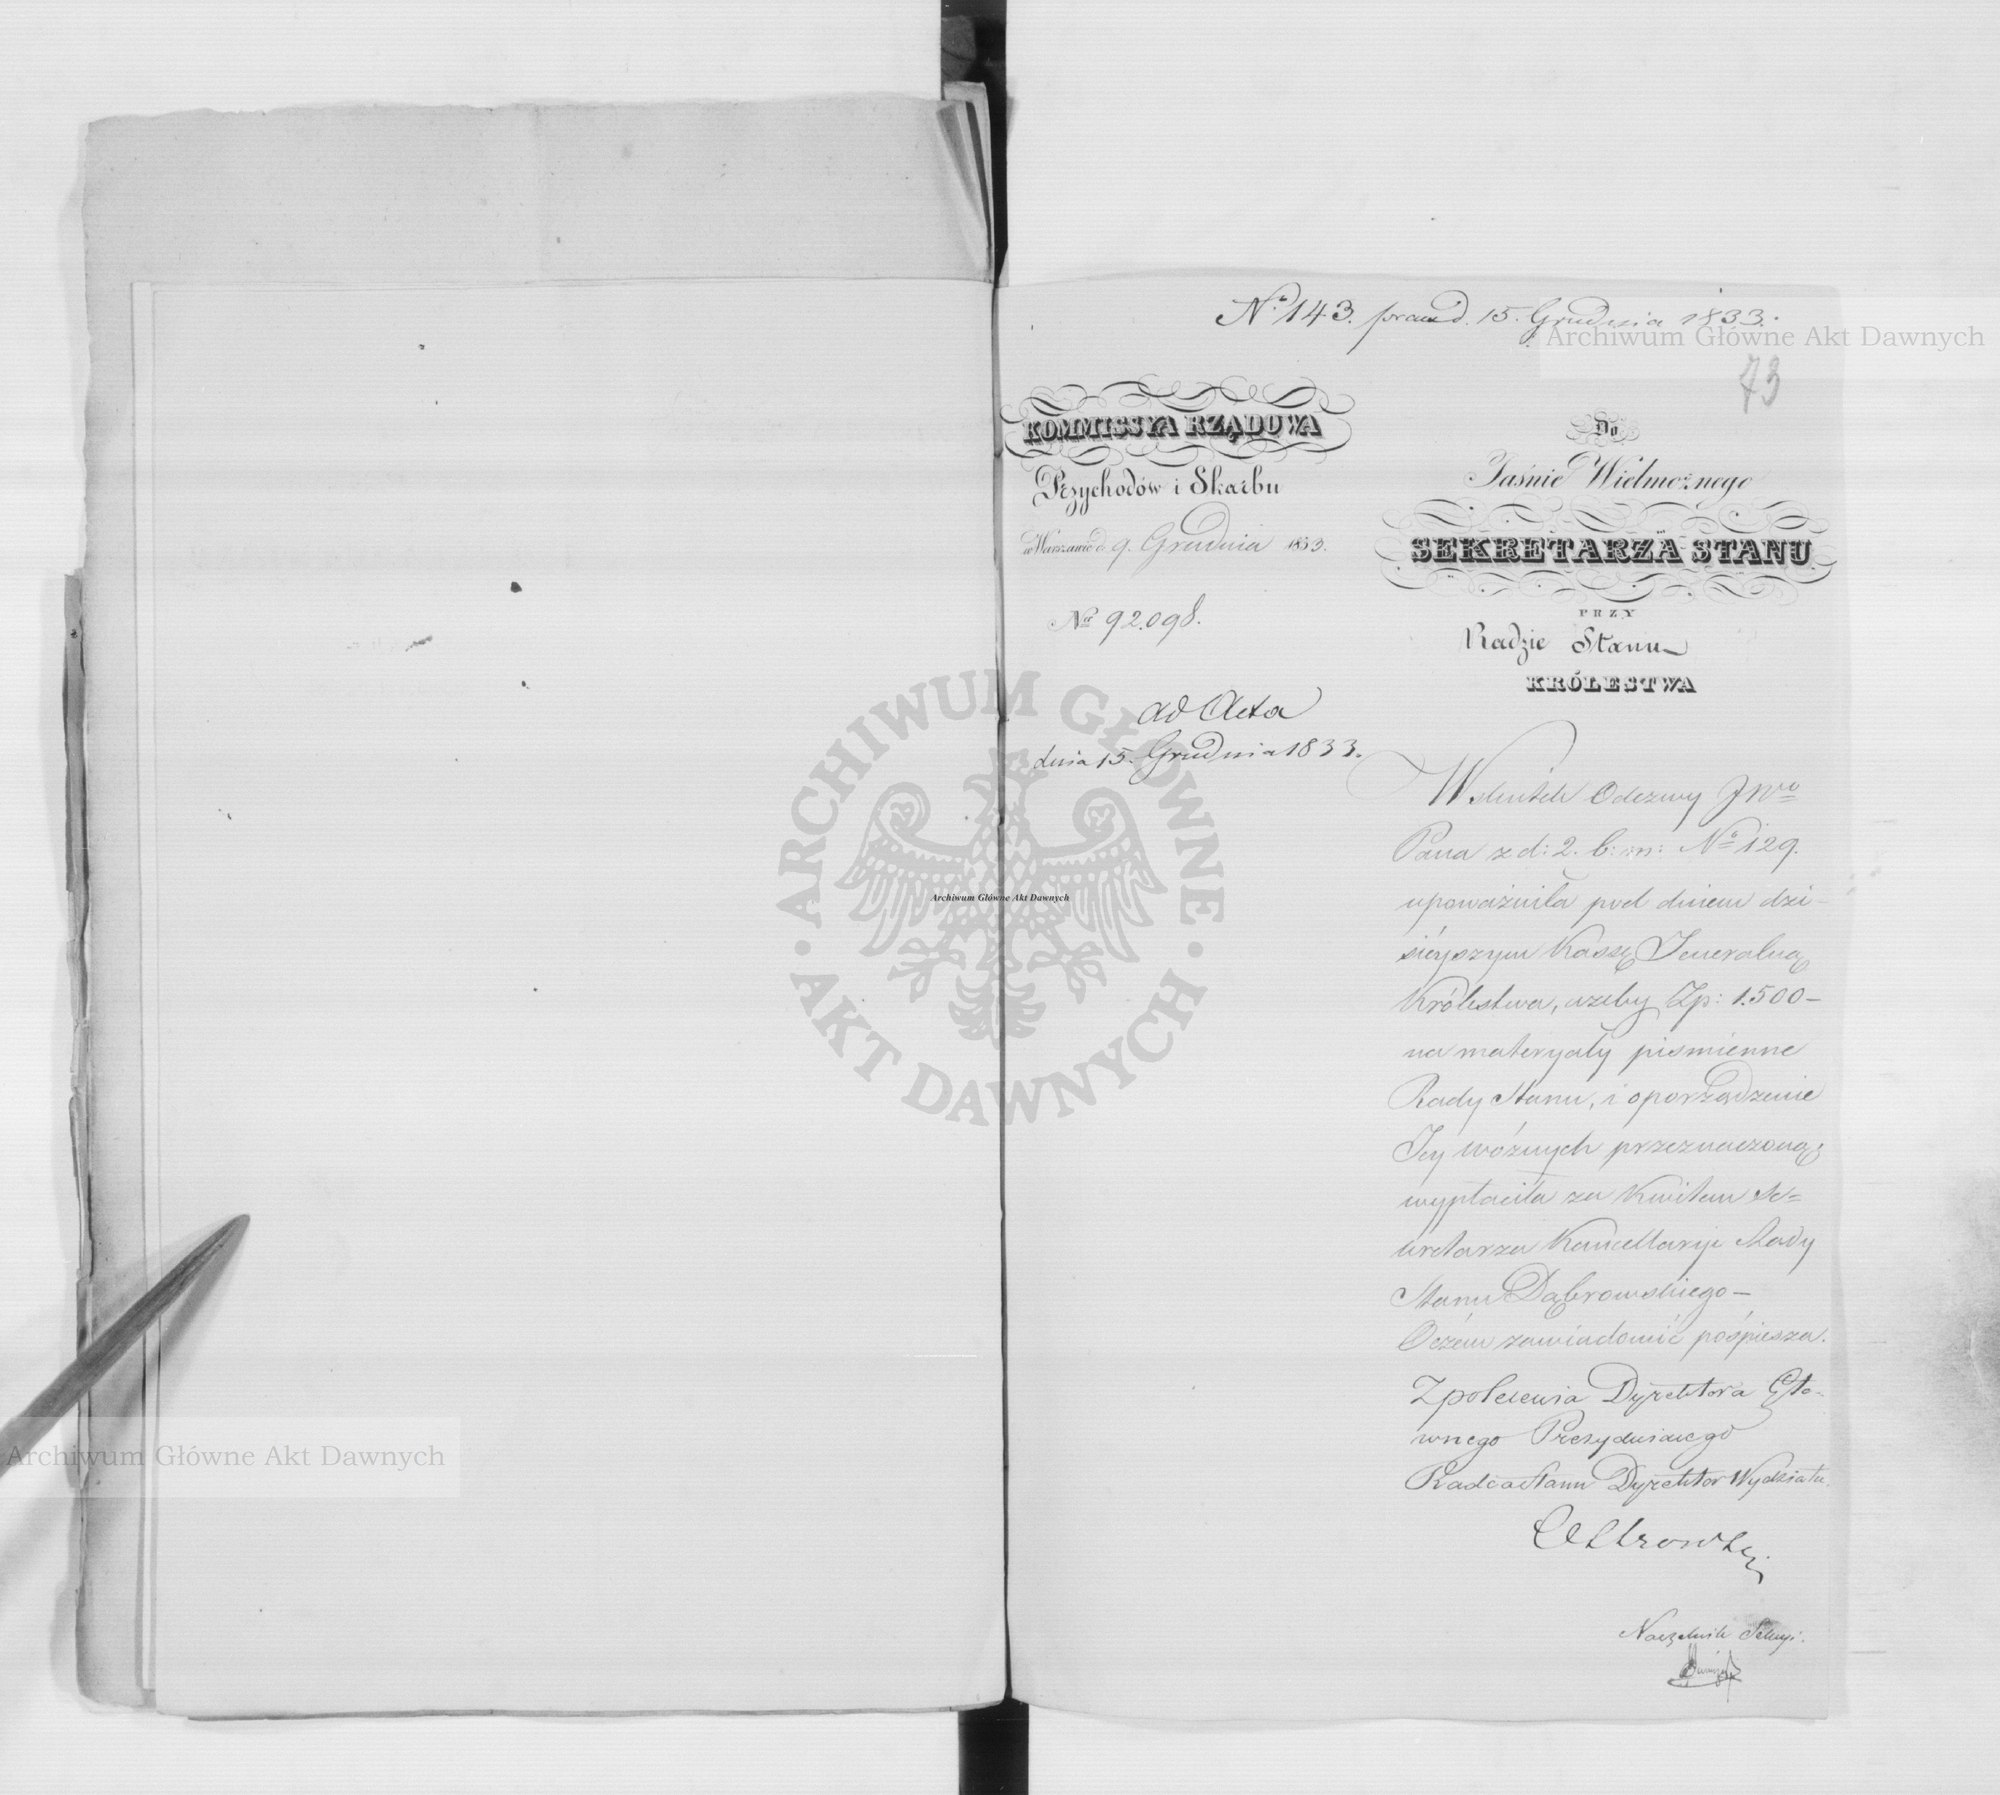 Nº 143. praes d. 15. Grudnia 1833.
73
KOMMISSYA RZĄDOWA
Przychodów i Skarbu
w Warszawie d. 9. Grudnia 1833.
Nr 92.098.
ad Acta
dnia 15. Grudnia 1833.
Do
Jaśnie Wielmożnego
SEKRETARZA STANU
PRZY
Radzie Stanu
KRÓLESTWA
W skutek Odezwy JWo
Pana z d: 2. b: m: Nº 129.
upoważniła pod dniem dzi-
sieyszym Kassę Jeneralną
Królestwa, ażeby Zp: 1.500-
na materyały piśmienne
Rady Stanu, i oporządzenie
Jey woźnych przeznaczoną
wypłaciła za Kwitem Se=
kretarza Kancellaryi Rady
Stanu Dąbrowskiego-
O czem zawiadomić pośpiesza.
Z polecenia Dyrektora Głó-
wnego Prezyduiącego
Radca Stanu Dyrektor Wydziału
Naczelnik Sekcyi.
Archiwum Główne Akt Dawnych
Archiwum Główne Akt Dawnych
Archiwum Główne Akt Dawnych
ARCHIWUM GŁÓWNE
AKT DAWNYCH